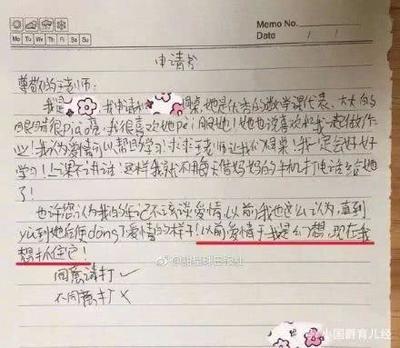 Memo No.
Mo Tu We Th Fr Sa Su
Date / /
申请书
尊敬的王老师:
我是 ,我申请和 同桌,她是优秀的数学课代表,大大的
眼睛很piào亮,我很喜欢她pèi服她!她也说喜欢和我一起做作
业!我认为爱情可以帮助学习!求求王老师让我们同桌!我一定会好好
学习!上课不讲话!这样我就不用每天借妈妈的手机打电话给她
了!
也许您认为我的年纪不该谈爱情,以前我也这么认为,直到
yù到她后我dǒng了爱情的样子!以前爱情于我是幻想,现在我
想抓住它!
同意请打 ✓
不同意打 ×
小国爵育儿经